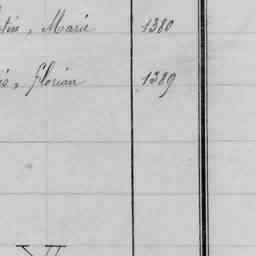 tin, Marie 1380
is, Florian 1389